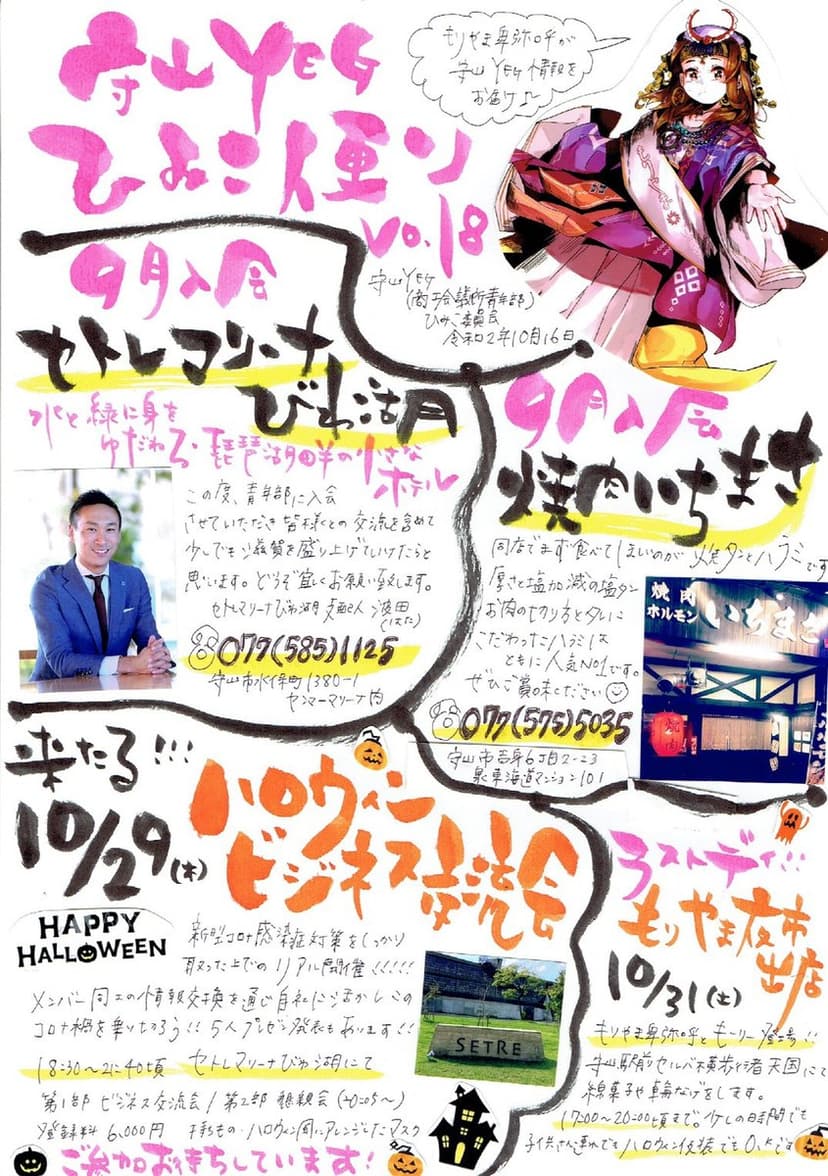 守山YEG
ひみこ便り
Vo.18
もりやま卑弥呼が
守山YEG情報を
お届け♪
守山YEG
(商工会議所青年部)
ひみこ委員会
令和2年10月16日
9月入会
セトレマリーナ
びわ湖
水と緑に身を
ゆだねる・琵琶湖畔の小さな
ホテル
この度、青年部に入会
させていただき皆様との交流を含めて
少しでも滋賀を盛り上げていけたらと
思います。どうぞ宜しくお願い致します。
セトレマリーナびわ湖 支配人
(はた)
077(585)1125
守山市水保町1380-1
ヤンマーマリーナ内
9月入会
焼肉いちまさ
同店でまず食べてしまいのが 焼タンとハラミです
厚さと塩加減の塩タン
お肉の切り方とタレに
こだわったハラミは
ともに人気NO1です。
ぜひご賞味ください
077(575)5035
守山市吉身6丁目2-23
東海道マンション101
焼肉
ホルモン
いちまさ
焼肉
来たる!!!
10/29(木)
ハロウィン
ビジネス交流会
HAPPY
HALLOWEEN
新型コロナ感染症対策をしっかり
取った上での リアル開催!!!!!
メンバー同士の情報交換を通じ自社に活かしこの
コロナ禍を乗りきろう!! 5人プレゼン発表もあります!!
18:30〜21:40頃 セトレマリーナびわ湖にて
第1部 ビジネス交流会/第2部 懇親会(20:05〜)
登録料 6,000円 持ちもの・ハロウィン用にアレンジしたマスク
ご参加お待ちしています!
SETRE
ラストデイ!!
もりやま夜市
出店
10/31(土)
もりやま卑弥呼ともーりー登場!!
守山駅前セルバ横歩行者天国にて
綿菓子や輪なげをします。
17:00〜20:00頃まで。少しの時間でも
子供さん連れでもハロウィン仮装でもO.Kです